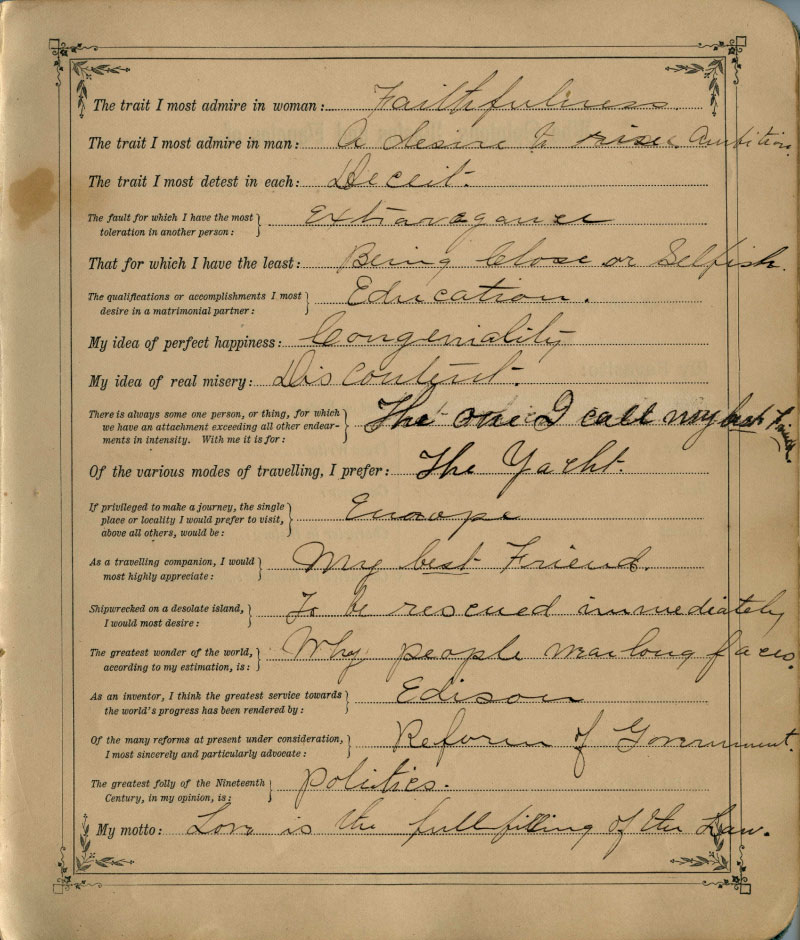 The trait I most admire in woman: Faithfulness.
The trait I most admire in man: A desire to rise. Ambition.
The trait I most detest in each: Deceit.
The fault for which I have the most
toleration in another person: Extravagance
That for which I have the least: Being Close or Selfish.
The qualifications or accomplishments I most
desire in a matrimonial partner: Education.
My idea of perfect happiness: Congeniality
My idea of real misery: Discontent.
There is always some one person, or thing, for which
we have an attachment exceeding all other endear-
ments in intensity. With me it is for: The one I call my best Friend.
Of the various modes of travelling, I prefer: The Yacht.
If privileged to make a journey, the single
place or locality I would prefer to visit,
above all others, would be: Europe
As a travelling companion, I would
most highly appreciate: My best Friend.
Shipwrecked on a desolate island,
I would most desire: To be rescued immediately
The greatest wonder of the world,
according to my estimation, is: Why people wear long faces.
As an inventor, I think the greatest service towards
the world's progress has been rendered by: Edison
Of the many reforms at present under consideration,
I most sincerely and particularly advocate: Reform of Government.
The greatest folly of the Nineteenth
Century, in my opinion, is: Politics.
My motto: Love is the fullfilling of the Law.